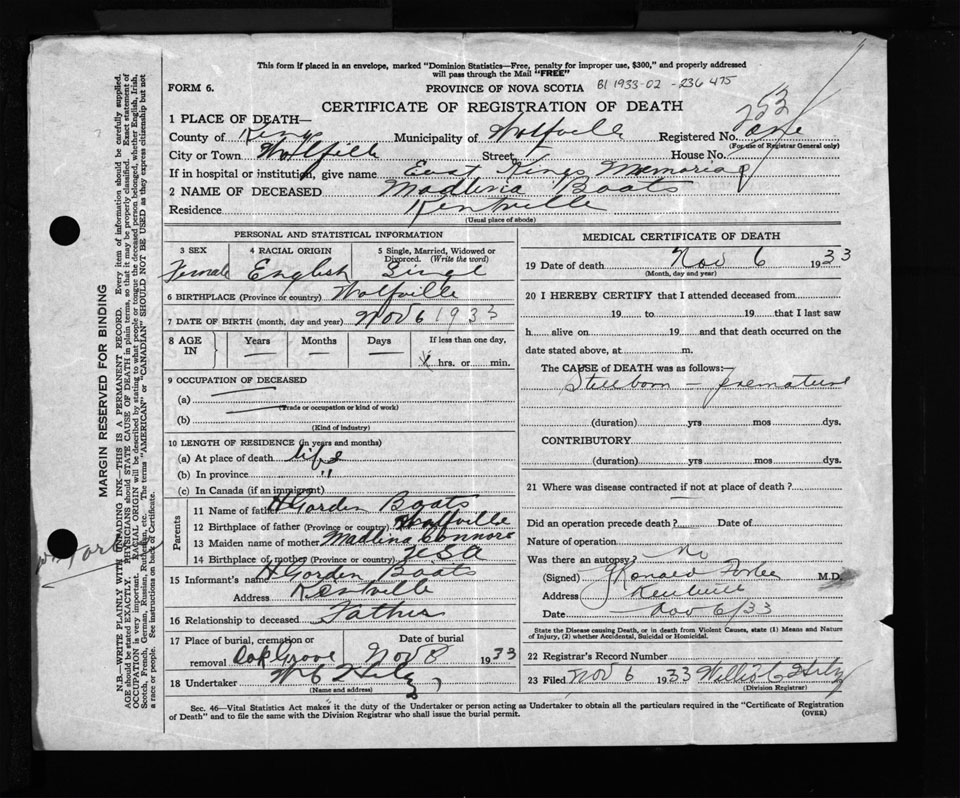 This form if placed in an envelope, marked "Dominion Statistics—Free, penalty for improper use, $300," and properly addressed
will pass through the Mail "FREE"
FORM 6.
PROVINCE OF NOVA SCOTIA
B1 1933-02 - 236 475
CERTIFICATE OF REGISTRATION OF DEATH
253
1 PLACE OF DEATH—
County of Kings Municipality of Wolfville Registered No. one
(For use of Registrar General only)
City or Town Wolfville Street House No.
If in hospital or institution, give name East Kings Memorial
2 NAME OF DECEASED Madlina Boats
Residence Kentville
(Usual place of abode)
PERSONAL AND STATISTICAL INFORMATION
3 SEX 4 RACIAL ORIGIN 5 Single, Married, Widowed or
Divorced. (Write the word)
Female English Singl
6 BIRTHPLACE (Province or country) Wolfville
7 DATE OF BIRTH (month, day and year) Nov 6 1933
8 AGE IN Years Months Days If less than one day,
hrs. or min.
9 OCCUPATION OF DECEASED
(a)
(Trade or occupation or kind of work)
(b)
(Kind of industry)
10 LENGTH OF RESIDENCE (in years and months)
(a) At place of death life
(b) In province "
(c) In Canada (if an immigrant)
Parents
11 Name of father H Gorden Boats
12 Birthplace of father (Province or country) Wolfville
13 Maiden name of mother Madlina Connors
14 Birthplace of mother (Province or country) USA
15 Informant's name H Gorden Boats
Address Kentville
16 Relationship to deceased Father
17 Place of burial, cremation or Date of burial
removal Oak Grove Nov 8 1933
18 Undertaker W C Hiltz
(Name and address)
MEDICAL CERTIFICATE OF DEATH
19 Date of death Nov 6 1933
(Month, day and year)
20 I HEREBY CERTIFY that I attended deceased from
19 to 19 that I last saw
h alive on 19 and that death occurred on the
date stated above, at m.
The CAUSE of DEATH was as follows:
Stillborn — premature
(duration) yrs mos dys.
CONTRIBUTORY
(duration) yrs mos dys.
21 Where was disease contracted if not at place of death?
Did an operation precede death? Date of
Nature of operation
Was there an autopsy? No
(Signed) Ronald M.D.
Address Kentville
Date Nov 6/33
State the Disease causing Death, or in death from Violent Causes, state (1) Means and Nature
of Injury, (2) whether Accidental, Suicidal or Homicidal.
22 Registrar's Record Number
23 Filed Nov 6 1933 Hiltz
(Division Registrar)
Sec. 46—Vital Statistics Act makes it the duty of the Undertaker or person acting as Undertaker to obtain all the particulars required in the "Certificate of Registration
of Death" and to file the same with the Division Registrar who shall issue the burial permit.
(OVER)
MARGIN RESERVED FOR BINDING
N.B.—WRITE PLAINLY WITH UNFADING INK—THIS IS A PERMANENT RECORD. Every item of information should be carefully supplied.
AGE should be stated EXACTLY. PHYSICIANS should STATE CAUSE OF DEATH in plain terms, so that it may be properly classified. Exact statement of
OCCUPATION is very important. RACIAL ORIGIN will be described by stating to what people or tongue the deceased person belonged, whether English, Irish,
Scotch, French, German, Russian, Ruthenian, etc. The terms "AMERICAN" or "CANADIAN" SHOULD NOT BE USED as they express citizenship but not
a race or people. See instructions on back of Certificate.